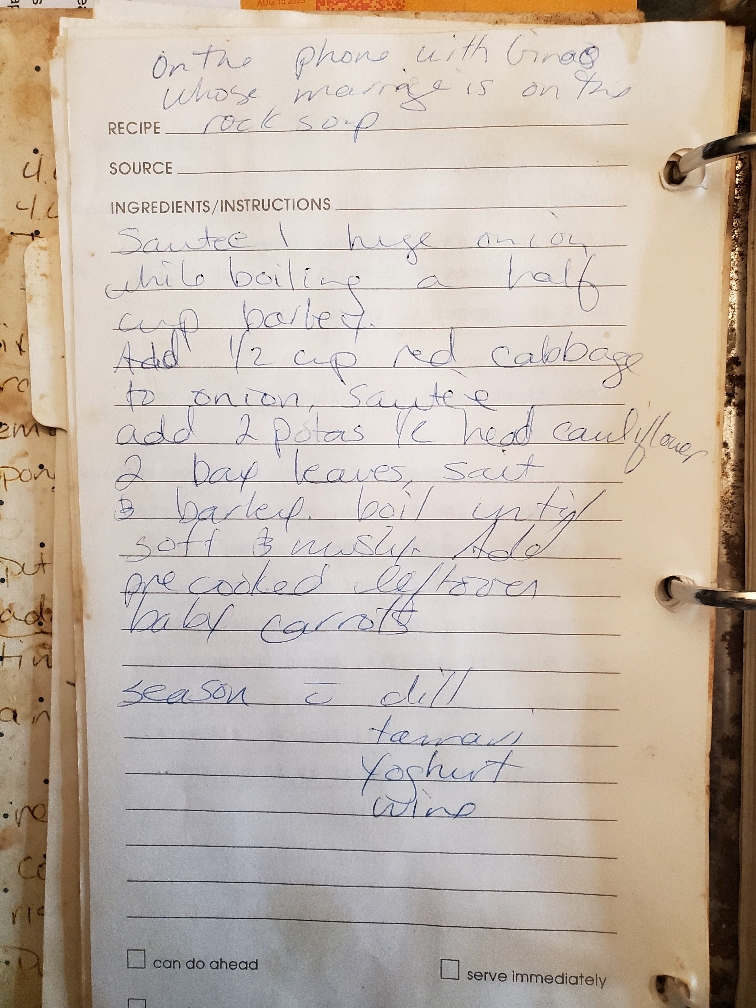 AUG 15 2023
on the phone with Gina
whose marriage is on the
RECIPE rock soup
SOURCE
INGREDIENTS/INSTRUCTIONS
Sautee 1 huge onion
while boiling a half
cup barley.
Add 1/2 cup red cabbage
to onion, sautee
add 2 potas 1/2 head cauliflower
2 bay leaves, salt
& barley. boil until
soft & mushy. Add
precooked leftover
baby carrots
season c̄ dill
tamari
Yoghurt
wine
can do ahead
serve immediately